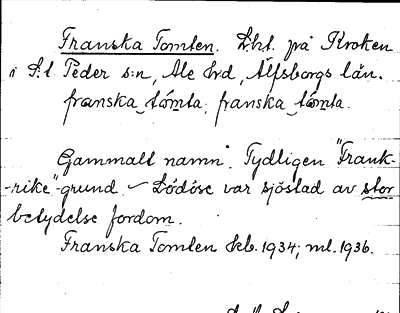 Franska Tomten. Lht. på Kroken
i S:t Peder s:n, Ale hd, Älfsborgs län.
franska tómta, franska tómta.
Gammalt namn. Tydligen "Frank-
-rike"-grund. – Lödöse var sjöstad av stor
betydelse fordom.
Franska Tomten skb. 1934; ml. 1936.